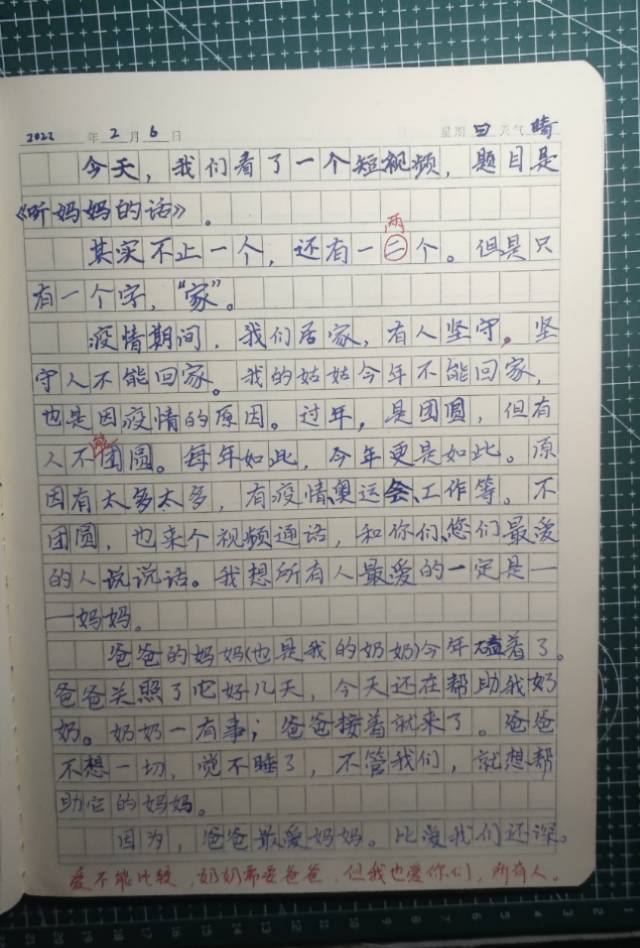 2022 年 2 月 6 日 星期 日 天气 晴
今天，我们看了一个短视频，题目是
《听妈妈的话》。
其实不止一个，还有一二个。但是只
两
有一个字，“家”。
疫情期间，我们居家，有人坚守。坚
守人不能回家。我的姑姑今年不能回家，
也是因疫情的原因。过年，是团圆，但有
人不团圆。每年如此，今年更是如此。原
能
因有太多太多，有疫情、奥运会、工作等。不
团圆，也来个视频通话，和你们、您们最爱
的人说说话。我想所有人最爱的一定是—
—妈妈。
爸爸的妈妈(也是我的奶奶)今年磕着了。
爸爸关照了它好几天，今天还在帮助我奶
奶。奶奶一有事；爸爸接着就来了。爸爸
不想一切，觉不睡了，不管我们，就想帮
助它的妈妈。
因为，爸爸最爱妈妈。比爱我们还深。
爱不能比较，奶奶都爱爸爸，但我也爱你们，所有人。